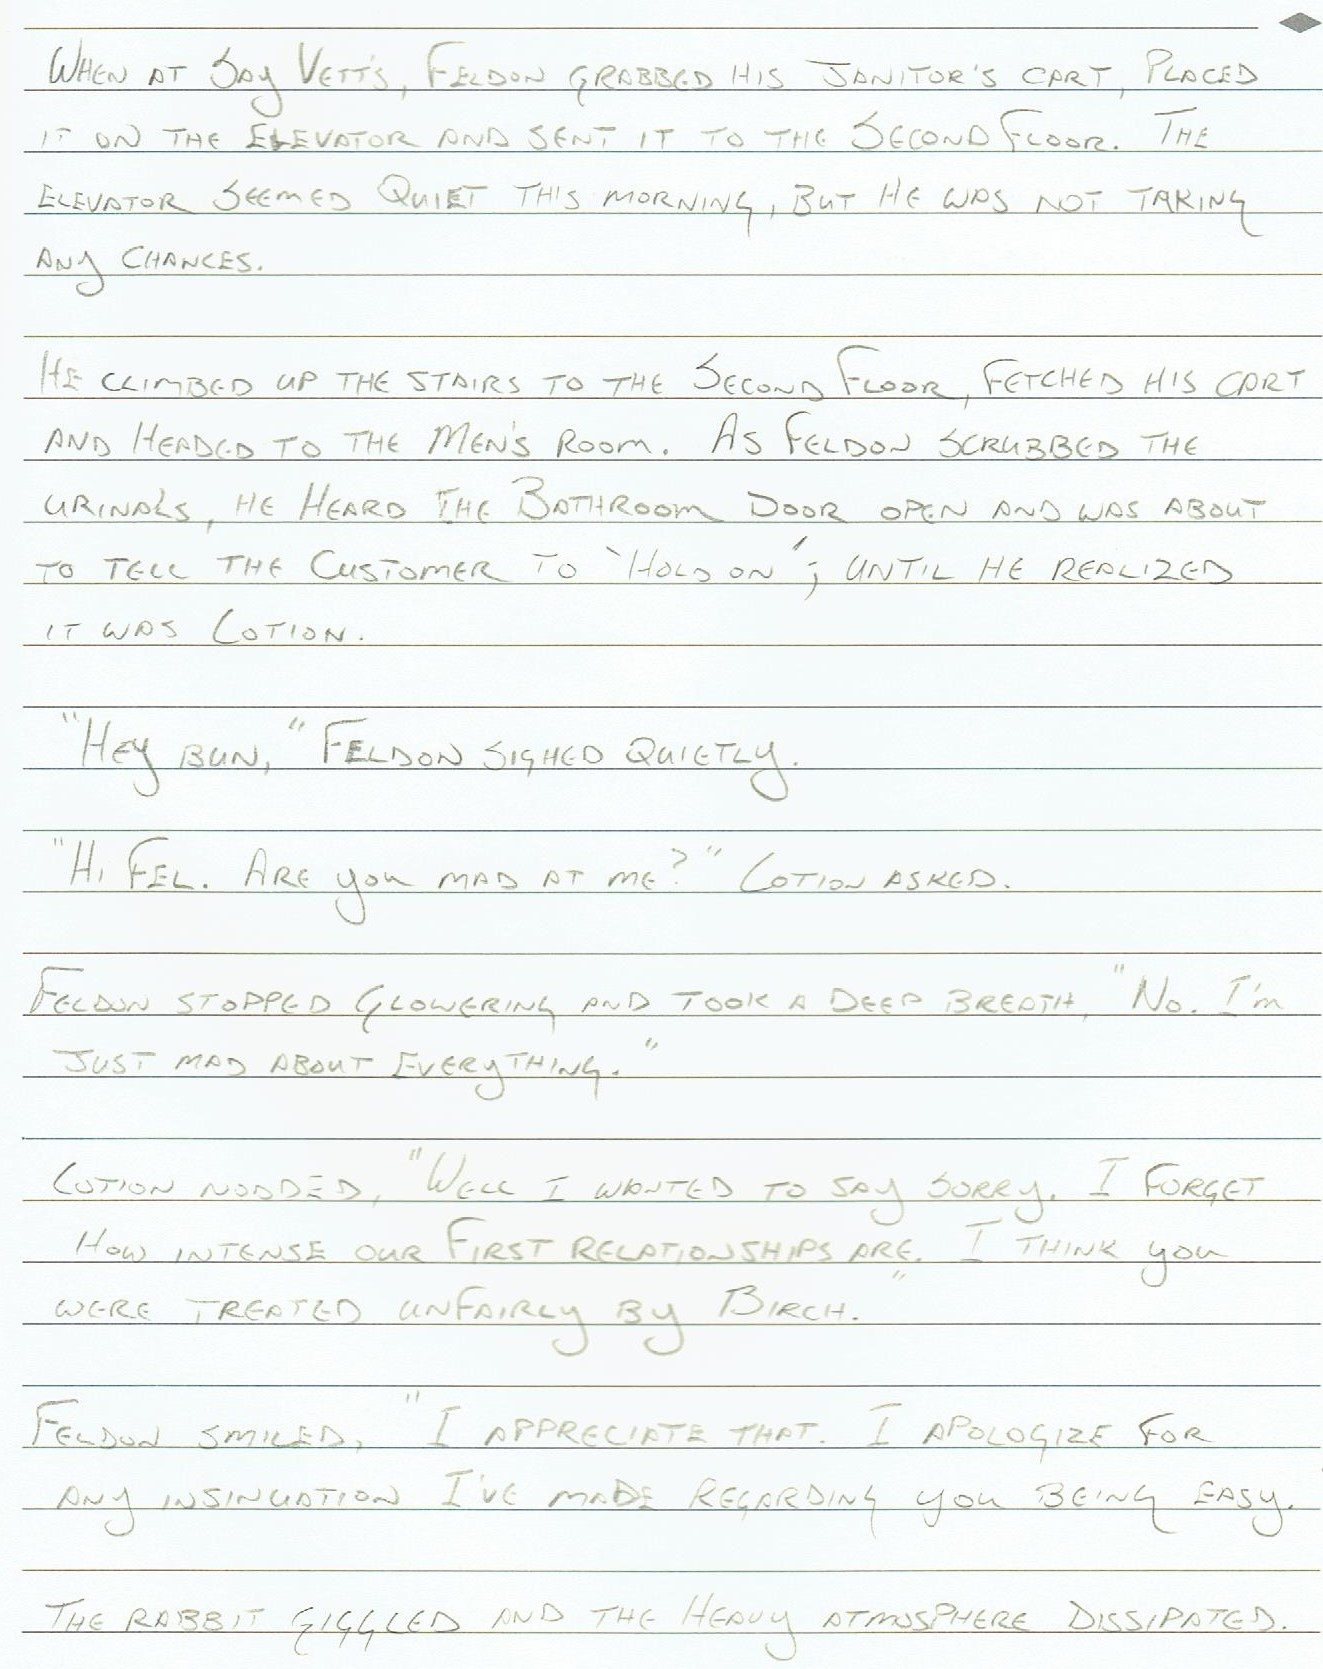 When at Say Vett's, Feldon grabbed his janitor's cart, placed
it on the elevator and sent it to the Second Floor. The
elevator seemed quiet this morning, but he was not taking
any chances.
He climbed up the stairs to the Second Floor, fetched his cart
and headed to the Men's Room. As Feldon scrubbed the
urinals, he heard the bathroom door open and was about
to tell the customer to 'Hold on'; until he realized
it was Lotion.
"Hey bun," Feldon sighed quietly.
"Hi Fel. Are you mad at me?" Lotion asked.
Feldon stopped glowering and took a deep breath, "No. I'm
just mad about everything."
Lotion nodded, "Well I wanted to say sorry. I forget
how intense our first relationships are. I think you
were treated unfairly by Birch."
Feldon smiled, "I appreciate that. I apologize for
any insinuation I've made regarding you being easy.
The rabbit giggled and the heavy atmosphere dissipated.